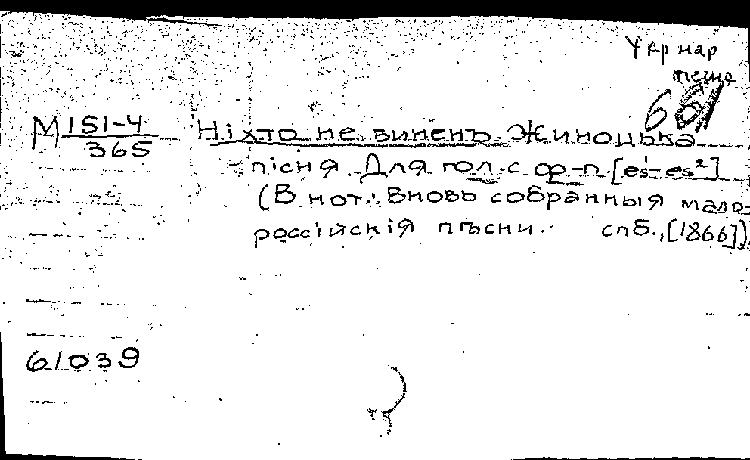 Укр нар
песня
661
М 151-4
365
Ніхто не виненъ. Жиноцька
пісня Для гол. с ф-п. [es-es²]
(В нот.: Вновь собранныя мало-
россійскія пѣсни. спб., [1866])
61039